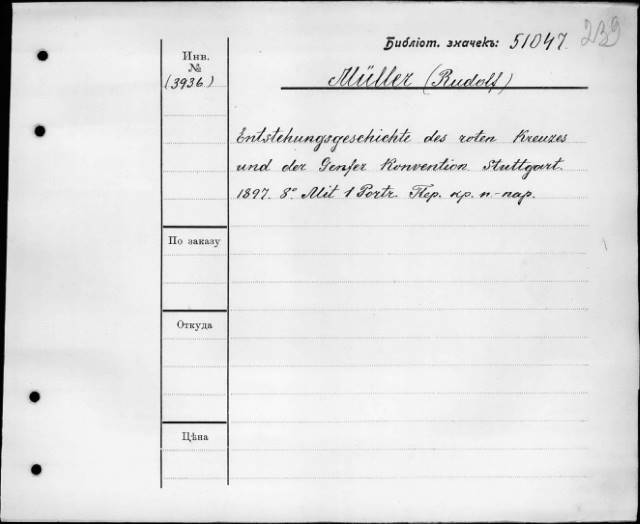 239
Библіот. значекъ: 51047.
Инв.
№
(3936)
Müller (Rudolf)
Entstehungsgeschichte des roten Kreuzes
und der Genfer Konvention. Stuttgart.
1897. 8° Mit 1 Portr. Пер. кр. п.-пар.
По заказу
Откуда
Цѣна